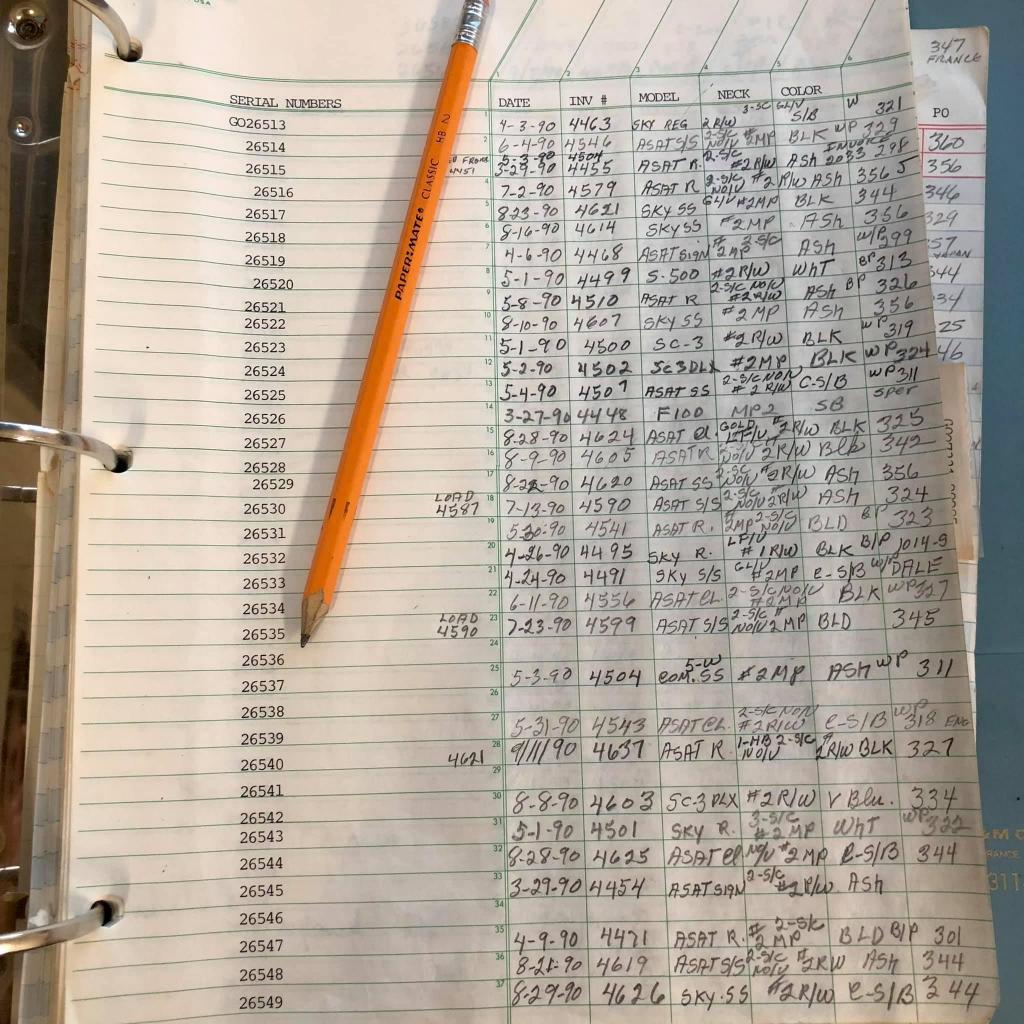 USA
347
FRANCE
SERIAL NUMBERS DATE INV # MODEL NECK COLOR PO
GO26513 4-3-90 4463 SKY REG 3-SC GL/V 2 R/W S/B W 321
26514 6-4-90 4546 ASAT S/S 2-S/C # NO/V 2MP BLK WP 329 360
26515 4451 5-3-90 4504 3-29-90 4455 ASAT R. 2-S/C #2 R/W ASH INVOICE 2033 298 356
26516 7-2-90 4579 ASAT R 2-S/C NO/V #2 R/W ASH 356 5 346
26517 8-23-90 4621 SKY SS GL/V #2MP BLK 344 329
26518 8-16-90 4614 SKY SS #2MP ASH 356 357 JAPAN
26519 4-6-90 4468 ASAT SIGN # 3-S/C 2MP ASH W/P 299 344
26520 5-1-90 4499 S-500 #2 R/W WHT BP 313 334
26521 5-8-90 4510 ASAT R 2-S/C NO/V #2 R/W ASH BP 326 25
26522 8-10-90 4607 SKY SS #2 MP ASH 356 46
26523 5-1-90 4500 SC-3 #2 R/W BLK WP 319
26524 5-2-90 4502 SC3DLX #2MP BLK WP 324
26525 5-4-90 4507 ASAT SS 2-S/C NO/V #2 R/W C-S/B WP 311
26526 3-27-90 4448 F100 MP2 SB SPER
26527 8-28-90 4624 ASAT CL. GOLD LF/V #2 R/W BLK 325
26528 8-9-90 4605 ASAT R NO/V 2 R/W BLK 342
26529 8-22-90 4620 ASAT SS 2-SC NO/V #2 R/W ASH 356
26530 LOAD 4587 7-13-90 4590 ASAT S/S 2-S/C NO/V 2 R/W ASH 324
26531 5-30-90 4541 ASAT R. 2-S/C 2MP NO/V BLD BP 323
26532 4-26-90 4495 SKY R. LF/V #1 R/W BLK B/P 1014-S
26533 4-24-90 4491 SKY S/S GL/V #2MP C-S/B W/P DALE
26534 6-11-90 4556 ASAT CL. 2-S/C NO/V #2MP BLK WP 327
26535 LOAD 4590 7-23-90 4599 ASAT S/S 2-S/C # NO/V 2 MP BLD 345
26536
26537 5-3-90 4504 COM. SS 5-W #2MP ASH WP 311
26538
26539 5-31-90 4543 ASAT CL. 2-S/C NO/V #2 R/W C-S/B WP 318 ENG
26540 4621 9/11/90 4637 ASAT R. 1-HB 2-S/C NO/V # 2 R/W BLK 327
26541
26542 8-8-90 4603 SC-3 DLX #2 R/W V Blu. 334
26543 5-1-90 4501 SKY R. 3-S/C #2 MP WHT WP 322
26544 8-28-90 4625 ASAT Cl NO/V #2 MP C-S/B 344
26545 3-29-90 4454 ASAT SIGN 2-S/C #2 R/W ASH
26546
26547 4-9-90 4471 ASAT R. # 2-S/C 2 MP BLD B/P 301
26548 8-21-90 4619 ASAT S/S 2-S/C NO/V #2RW ASH 344
26549 8-29-90 4626 SKY-SS #2 R/W C-S/B 344
PAPER:MATE CLASSIC HB 2
311